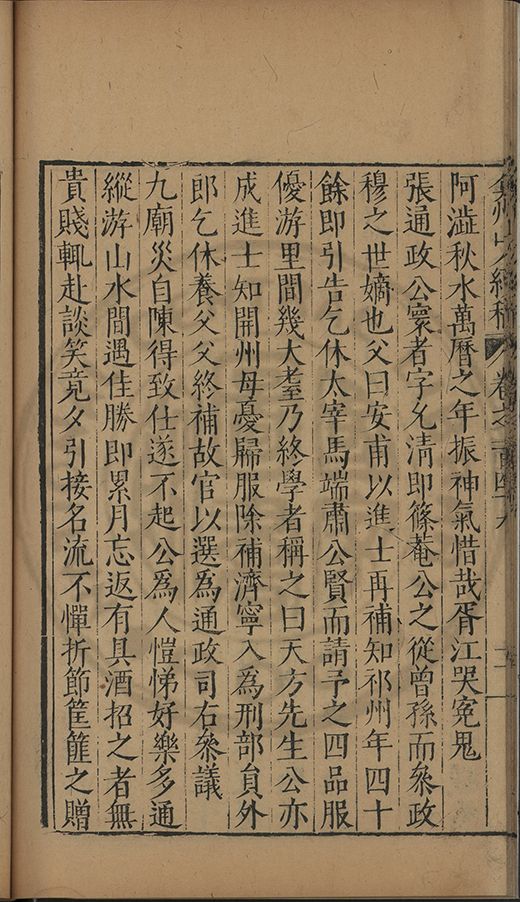 弇州山人續稿 卷之一百四十九
阿澁秋水萬曆之年振神氣惜哉胥江哭寃鬼
張通政公寰者字允清即篠菴公之從曾孫而叅政
穆之世嫡也父曰安甫以進士再補知祁州年四十
餘即引告乞休太宰馬端肅公賢而請予之四品服
優游里閒幾大耋乃終學者稱之曰天方先生公亦
成進士知開州母憂歸服除補濟寧入為刑部員外
郎乞休養父父終補故官以選為通政司右叅議
九廟災自陳得致仕遂不起公為人愷悌好樂多通
縱游山水間遇佳勝即累月忘返有具酒招之者無
貴賤輒赴談笑竟夕引接名流不憚折節筐篚之贈